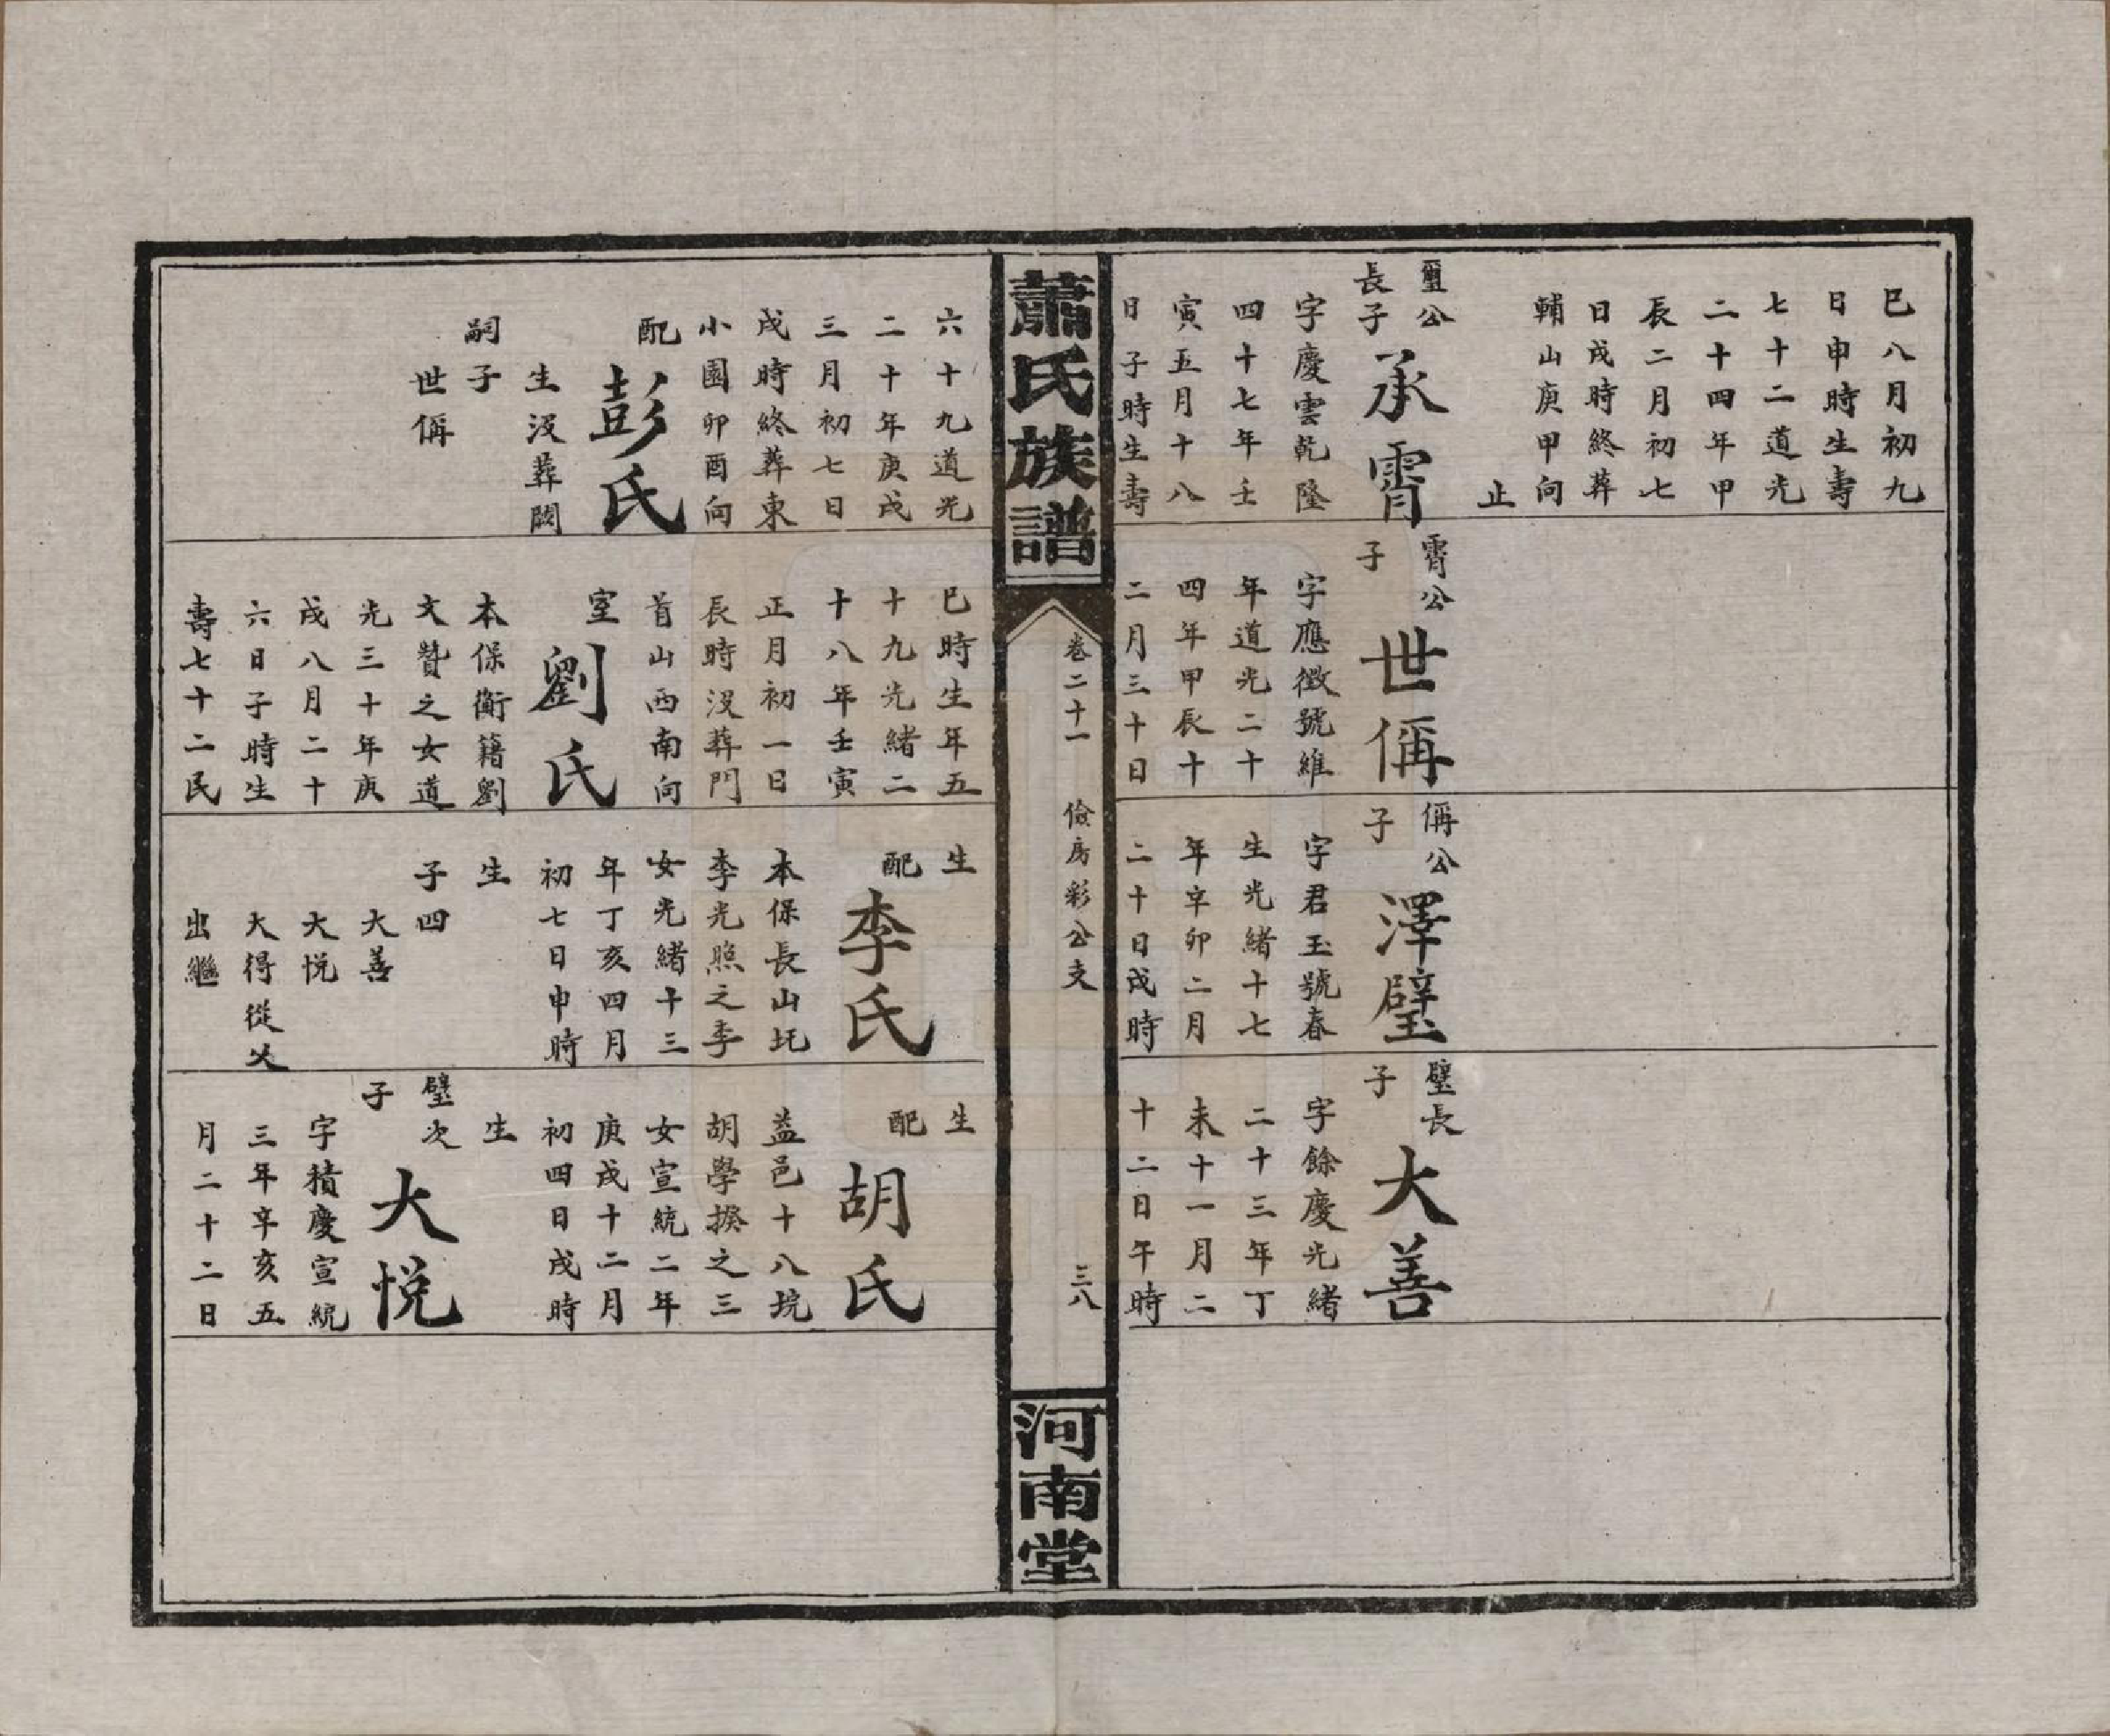 巳八月初九
日申時生壽
七十二道光
二十四年甲
辰二月初七
日戌時終葬
輔山庚甲向
止
璽公
長子
承霄
字慶雲乾隆
四十七年壬
寅五月十八
日子時生壽
霄公
子
世偁
字應徵號維
年道光二十
四年甲辰十
二月三十日
偁公
子
澤璧
字君玉號春
生光緒十七
年辛卯二月
二十日戌時
璧長
子
大善
字餘慶光緒
二十三年丁
未十一月二
十二日午時
蕭氏族譜
卷二十一
儉房彩公支
三八
河南堂
六十九道光
二十年庚戌
三月初七日
戌時終葬東
小園卯酉向
配
彭氏
生沒葬闕
嗣子
世偁
巳時生年五
十九光緒二
十八年壬寅
正月初一日
辰時沒葬門
首山西南向
室
劉氏
本保衡籍劉
文贊之女道
光三十年庚
戌八月二十
六日子時生
壽七十二民
生
配
李氏
本保長山圫
李光照之季
女光緒十三
年丁亥四月
初七日申時
生
子四
大善
大悦
大得從父
出繼
生
配
胡氏
益邑十八坑
胡學揆之三
女宣統二年
庚戌十二月
初四日戌時
生
璧次
子
大悦
字積慶宣統
三年辛亥五
月二十二日